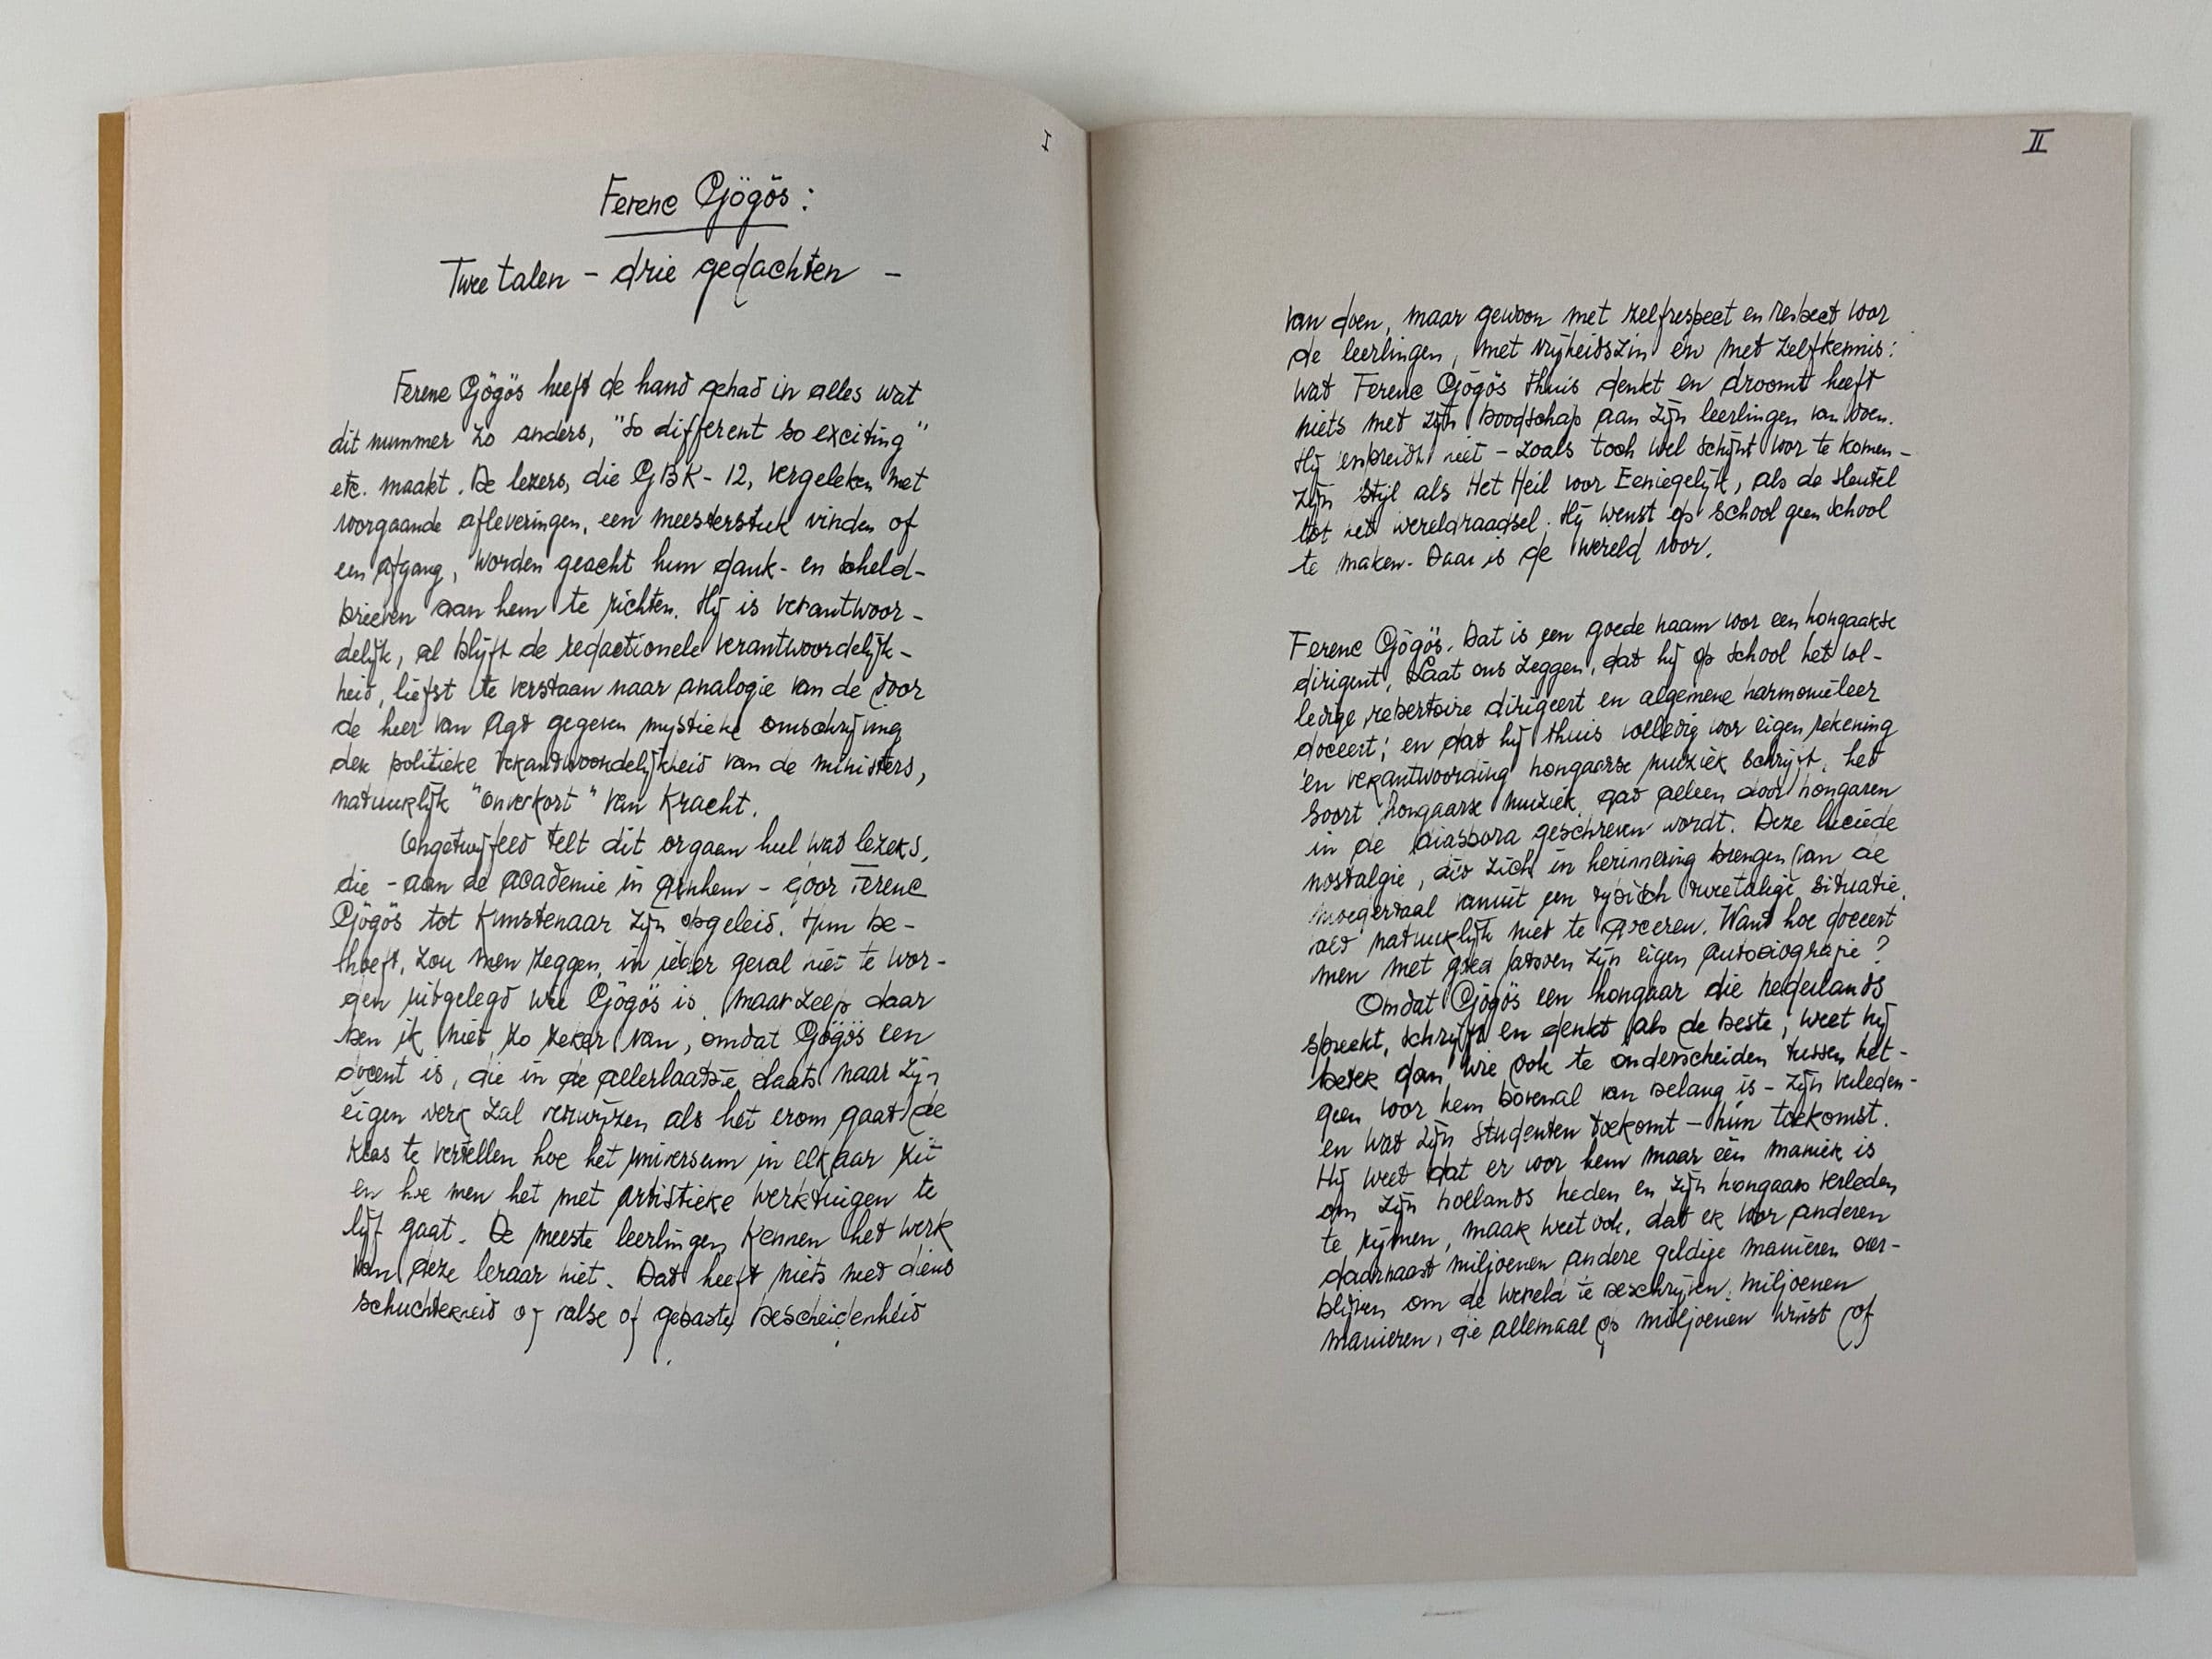 I
Ferenc Gögös:
Twee talen - drie gedachten -
Ferenc Gögös heeft de hand gehad in alles wat
dit nummer zo anders, "so different so exciting"
etc. maakt. De lezers, die GBK-12, vergeleken met
voorgaande afleveringen, een meesterstuk vinden of
een afgang, worden geacht hun dank- en scheld-
brieven aan hem te richten. Hij is verantwoor-
delijk, al blijft de redactionele verantwoordelijk-
heid, liefst te verstaan naar analogie van de door
de heer van Agt gegeven mystieke omschrijving
der politieke verantwoordelijkheid van de ministers,
natuurlijk "onverkort" van kracht.
Ongetwijfeld telt dit orgaan heel wat lezers,
die - aan de academie in Arnhem - door Ferenc
Gögös tot kunstenaar zijn opgeleid. Hun be-
hoeft, zou men zeggen, in ieder geval niet te wor-
den uitgelegd wie Gögös is. Maar zelfs daar
ben ik niet zo zeker van, omdat Gögös een
docent is, die in de allerlaatste plaats naar zijn
eigen werk zal verwijzen als het erom gaat de
klas te vertellen hoe het universum in elkaar zit
en hoe men het met artistieke werktuigen te
lijf gaat. De meeste leerlingen kennen het werk
van deze leraar niet. Dat heeft niets met diens
schuchterheid of valse of gepaste bescheidenheid
II
van doen, maar gewoon met zelfrespect en respect voor
de leerlingen, met vrijheidszin en met zelfkennis:
wat Ferenc Gögös thuis denkt en droomt heeft
niets met zijn boodschap aan zijn leerlingen van doen.
Hij verspreidt niet - zoals toch wel schijnt voor te komen -
zijn stijl als Het Heil voor Eeniegelijk, als de sleutel
tot het wereldraadsel. Hij wenst op school geen school
te maken. Daar is de wereld voor.
Ferenc Gögös. Dat is een goede naam voor een hongaarse
dirigent. Laat ons zeggen, dat hij op school het vol-
ledige repertoire dirigeert en algemene harmonieleer
doceert; en dat hij thuis volledig voor eigen rekening
en verantwoording hongaarse muziek schrijft, het
soort hongaarse muziek dat alleen door hongaren
in de diaspora geschreven wordt. Deze lucide
nostalgie, dit zich in herinnering brengen van de
moedertaal vanuit een typisch tweetalige situatie,
valt natuurlijk niet te doceren. Want hoe doceert
men met goed fatsoen zijn eigen autobiografie?
Omdat Gögös een hongaar die nederlands
spreekt, schrijft en denkt als de beste, weet hij
beter dan wie ook te onderscheiden tussen het-
geen voor hem bovenal van belang is - zijn verleden -
en wat zijn studenten toekomt - hún toekomst.
Hij weet dat er voor hem maar één manier is
om zijn hollands heden en zijn hongaars verleden
te rijmen, maar weet ook, dat er voor anderen
daarnaast miljoenen andere geldige manieren over-
blijven om de wereld te beschrijven; miljoenen
manieren, die allemaal op miljoenen winst of